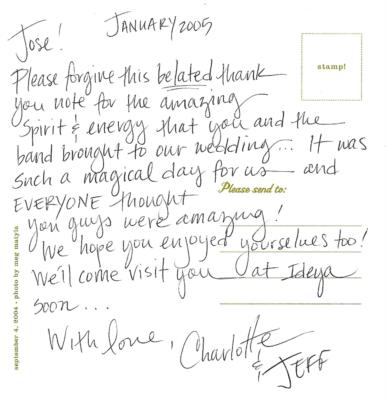 January 2005
Jose!
stamp!
Please forgive this belated thank
you note for the amazing
Spirit & energy that you and the
band brought to our wedding... It was
such a magical day for us and
EVERYONE thought
Please send to:
you guys were amazing!
We hope you enjoyed yourselves too!
We'll come visit you at Ideya
soon...
With love, Charlotte
& JEFF
september 4, 2004 - photo by meg maiyia